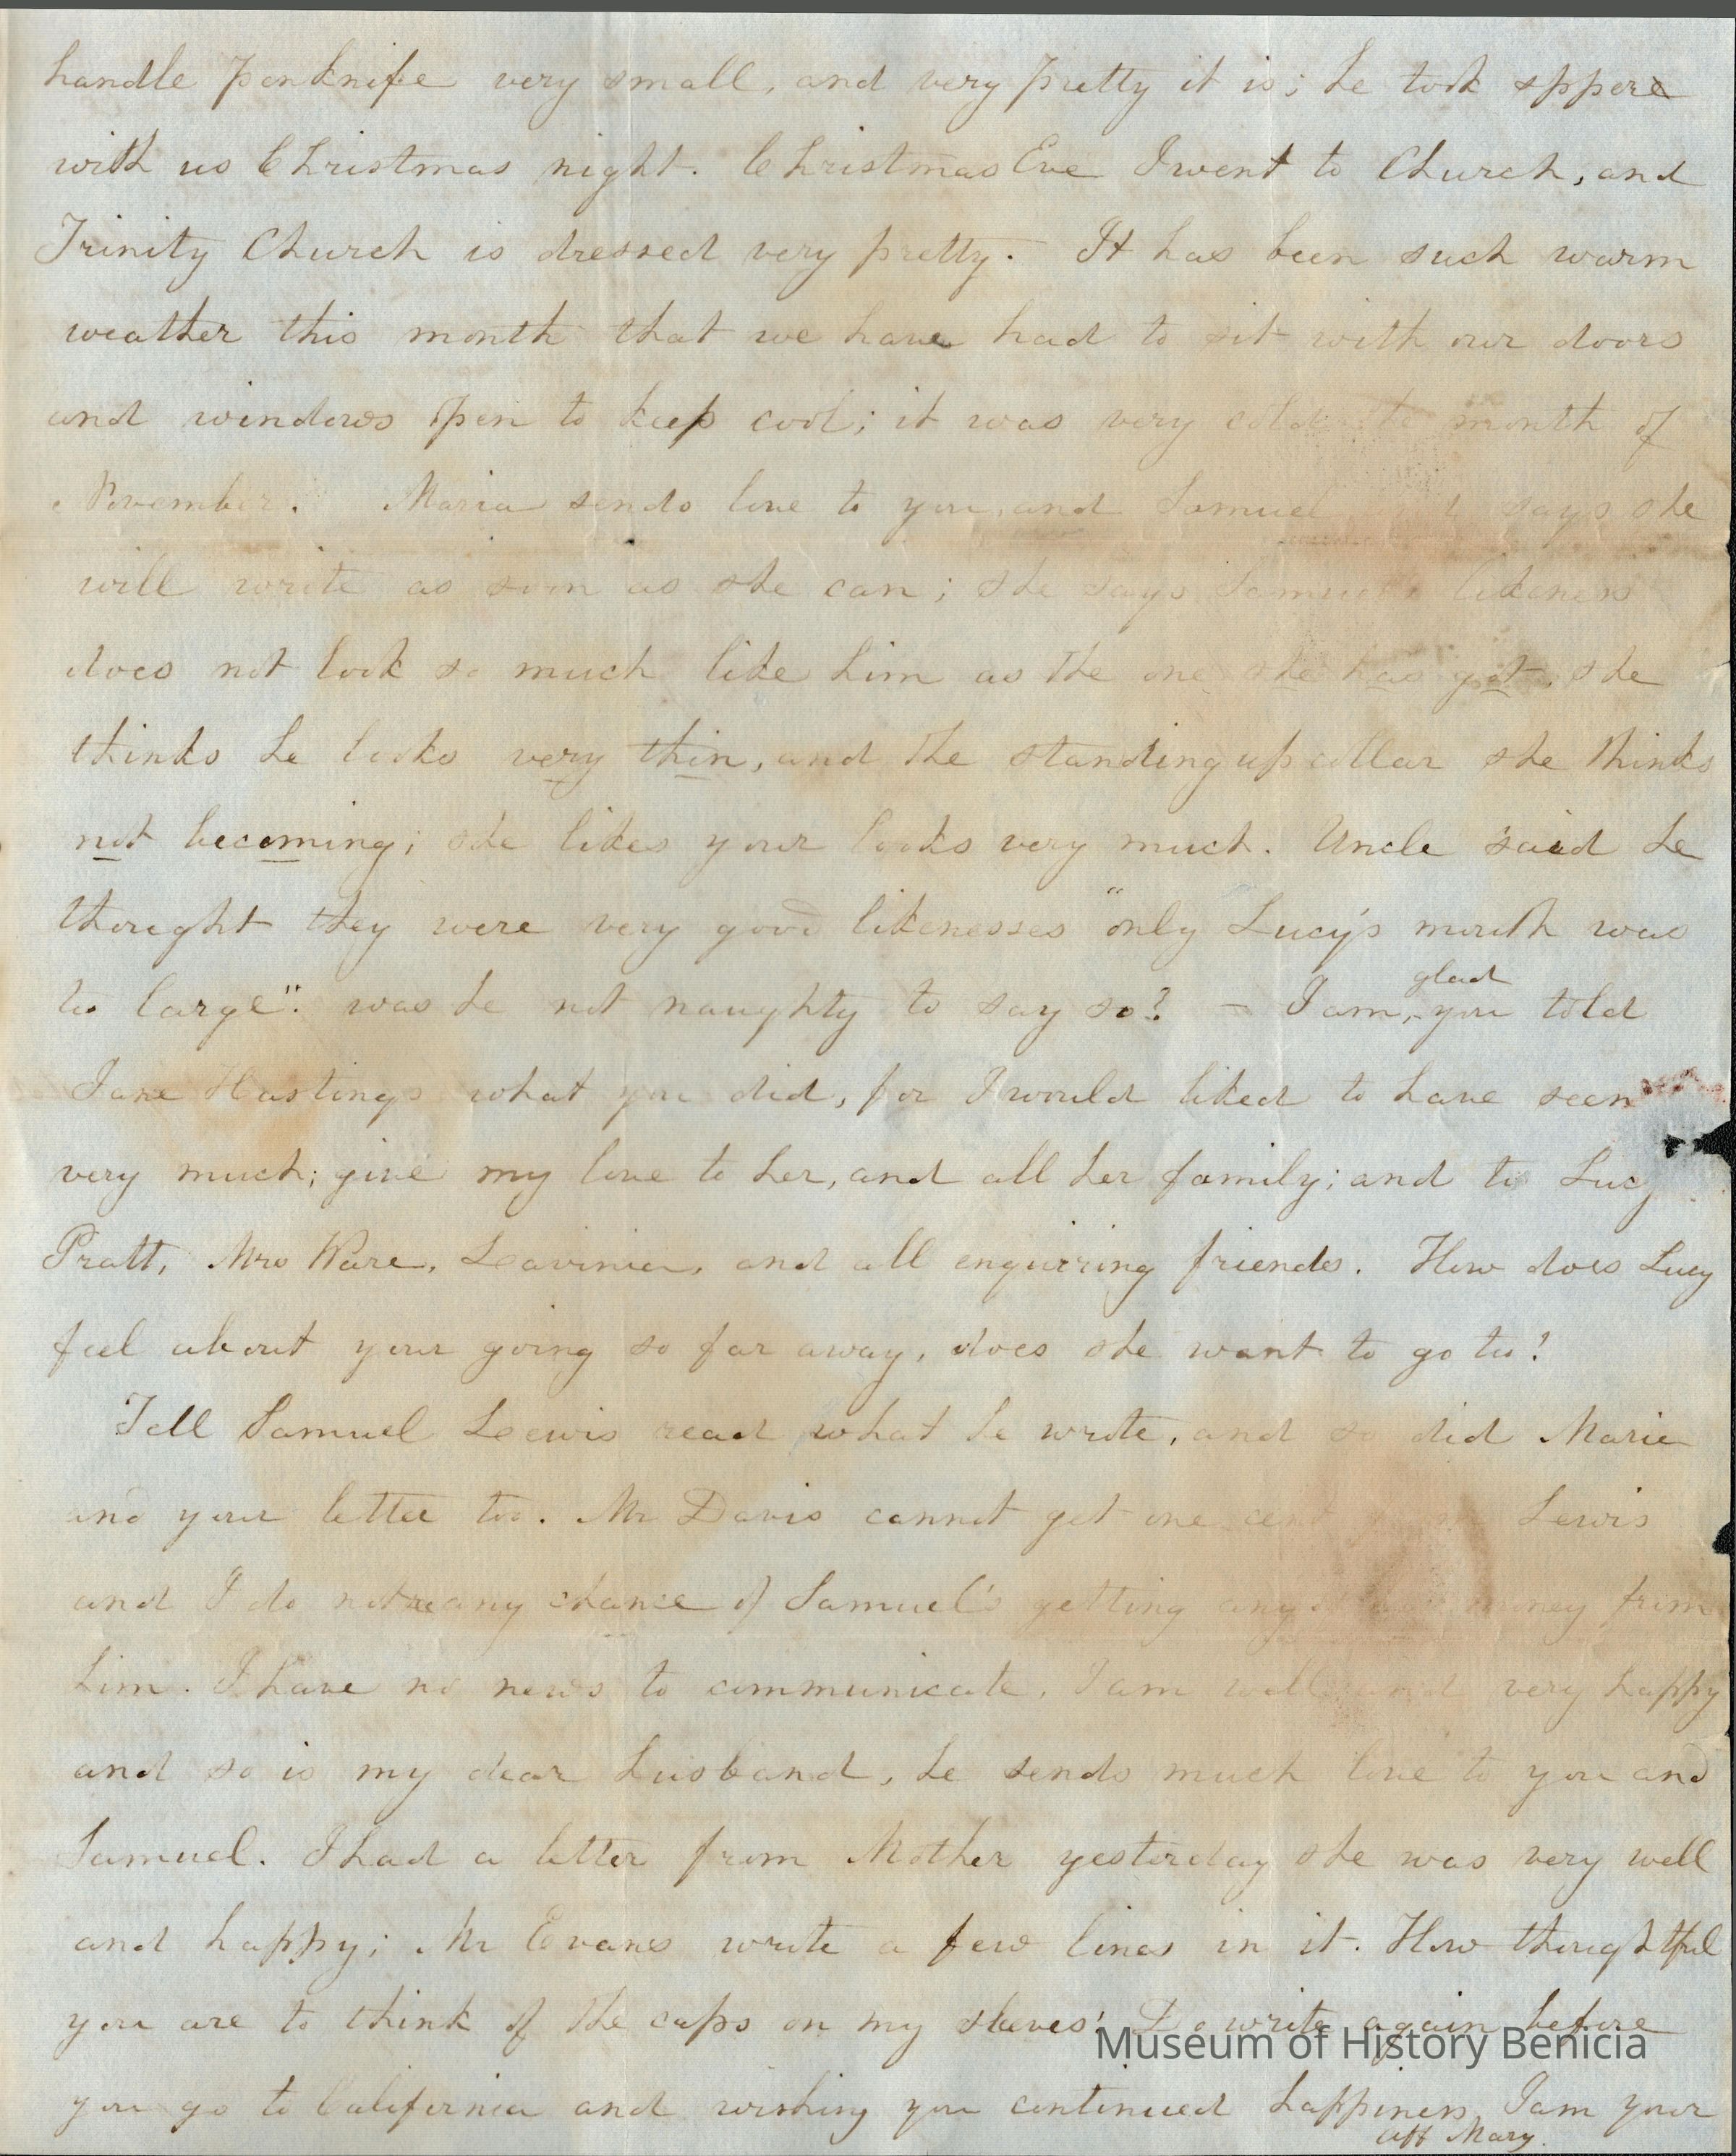 handle penknife very small, and very pretty it is; he took sppere
with us Christmas night. Christmas Eve I went to Church, and
Trinity Church is dressed very pretty. It has been such warm
weather this month that we have had to sit with our doors
and windows open to keep cool; it was very cold the month of
November. Maria sends love to you, and Samuel, says she
will write as soon as she can; she says Samuel's likeness
does not look so much like him as the one she has got, she
thinks he looks very thin, and the standing up collar she thinks
not becoming; she likes your looks very much. Uncle said he
thought they were very good likenesses "only Lucy's mouth was
to large". was he not naughty to say so? – I am, you told
glad
Jane Hastings what you did, for I would liked to have seen
very much; give my love to her, and all her family; and to Lucy
Pratt, Mrs Ware, Leavinia, and all enquiring friends. How does Lucy
feel about your going so far away, does she want to go to?
Tell Samuel Lewis read what he wrote, and so did Maria
and your letter too. Mr Davis cannot get one cent Lewis
and I do not see any chance of Samuel's getting any money from
him. I have no news to communicate, I am well and very happy
and so is my dear husband, he sends much love to you and
Samuel. I had a letter from Mother yesterday she was very well
and happy; Mr Evans wrote a few lines in it. How thoughtful
you are to think of the caps on my sleeves! Do write again before
you go to California and wishing you continued happiness, I am your
aff Mary.
Museum of History Benicia